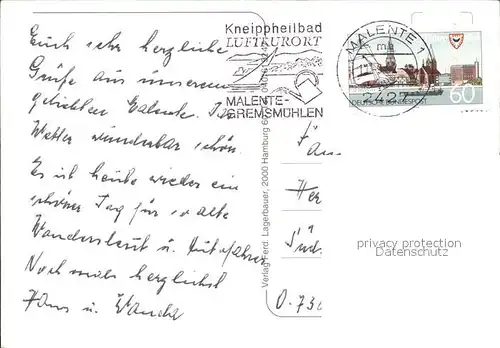 Euch sehr herzliche
Grüße aus unserem
geliebten Malente. Das
Wetter wunderbar schön.
Es ist heute wieder ein
schöner Tag für so alte
Wandersleut u. Autofahrer
Noch mals herzlichst
Hans u. Wanda
Kneippheilbad
LUFTKURORT
MALENTE-
GREMSMÜHLEN
MALENTE 1
2427
DEUTSCHE BUNDESPOST
60
Verlag Ferd. Lagerbauer, 2000 Hamburg
Fam
Her
Süd
privacy protection
Datenschutz